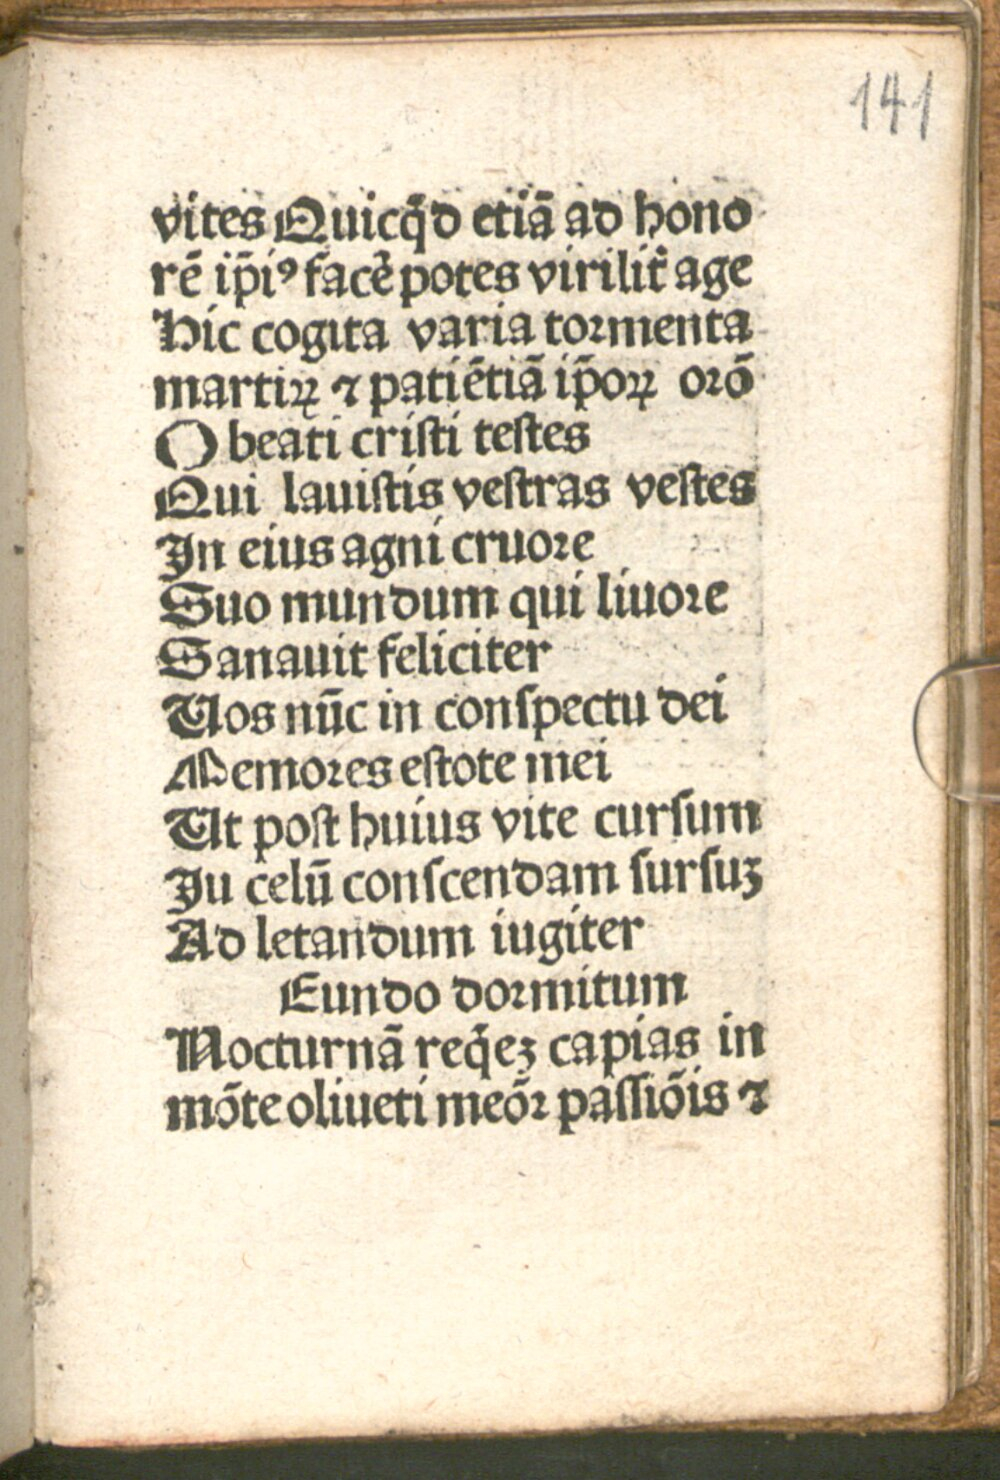 141
vites Quicq̄d etiā ad hono
rē ip̄iꝰ facē potes virilit̄ age
Hic cogita varia tormenta
martiꝝ ⁊ patiētiā ip̄oꝝ orō
O beati cristi testes
Qui lauistis vestras vestes
In eius agni cruore
Suo mundum qui liuore
Sanauit feliciter
Uos nūc in conspectu dei
Memores estote mei
Ut post huius vite cursum
Iu celū conscendam sursuꝫ
Ad letandum iugiter
Eundo dormitum
Nocturnā req̄eꝫ capias in
mōte oliueti meōr passiōis ⁊